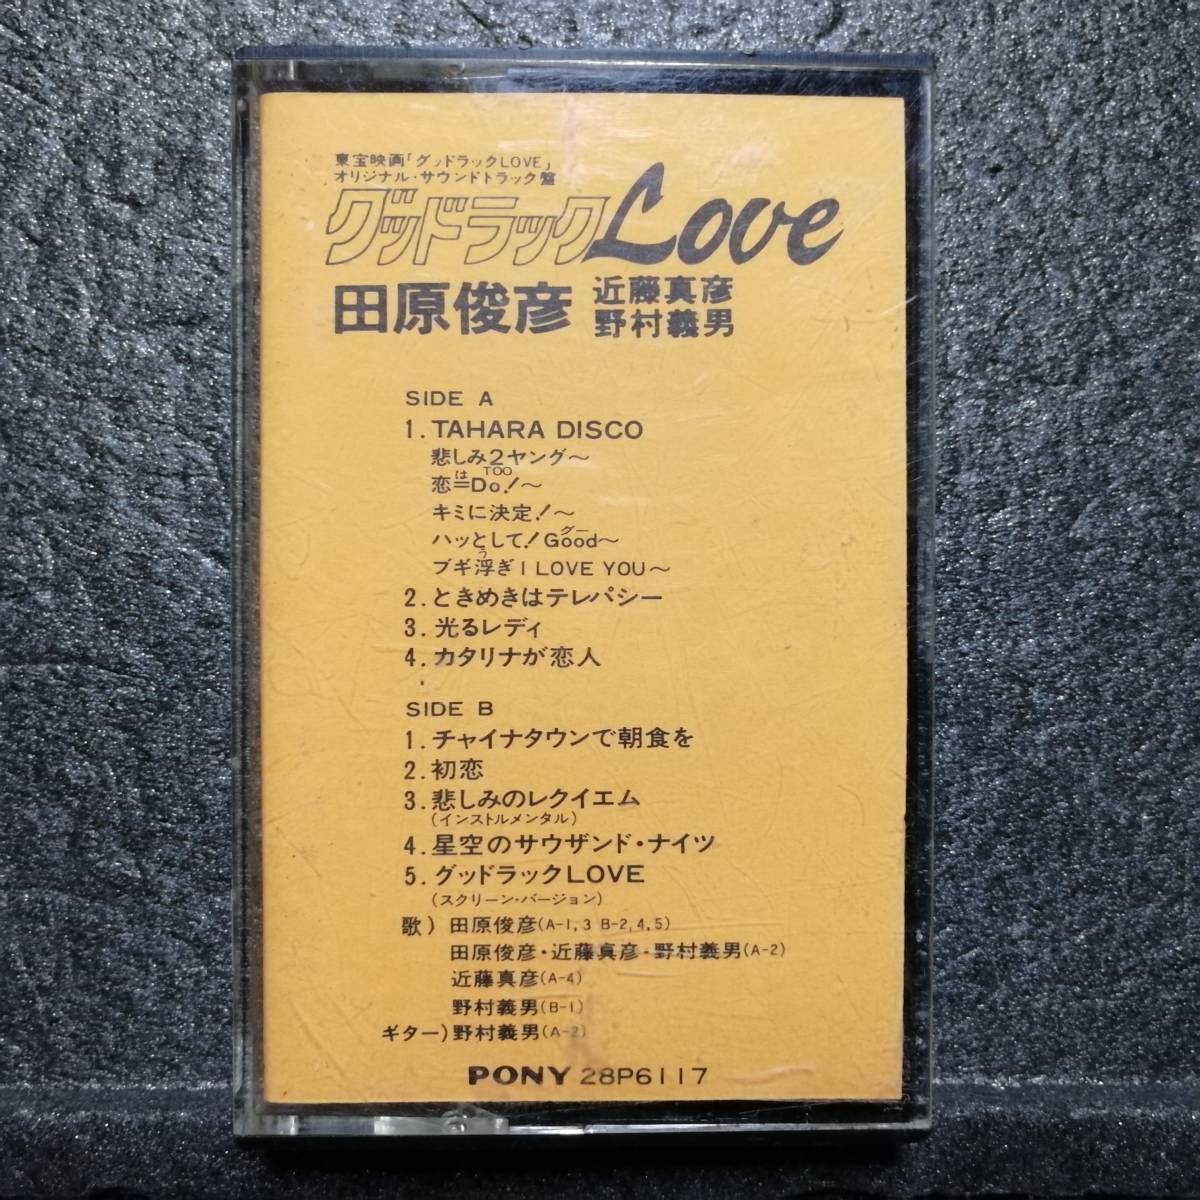 東宝映画「グッドラックLOVE」
オリジナル・サウンドトラック盤
グッドラックLove
田原俊彦 近藤真彦
野村義男
SIDE A
1. TAHARA DISCO
悲しみ2ヤング〜
TOO
は
恋=Do!〜
キミに決定!〜
グー
ハッとして!Good〜
う
ブギ浮ぎI LOVE YOU〜
2. ときめきはテレパシー
3. 光るレディ
4. カタリナが恋人
SIDE B
1. チャイナタウンで朝食を
2. 初恋
3. 悲しみのレクイエム
(インストルメンタル)
4. 星空のサウザンド・ナイツ
5. グッドラックLOVE
(スクリーン・バージョン)
歌) 田原俊彦(A-1, 3 B-2, 4, 5)
田原俊彦・近藤真彦・野村義男(A-2)
近藤真彦(A-4)
野村義男(B-1)
ギター) 野村義男(A-2)
PONY 28P6117